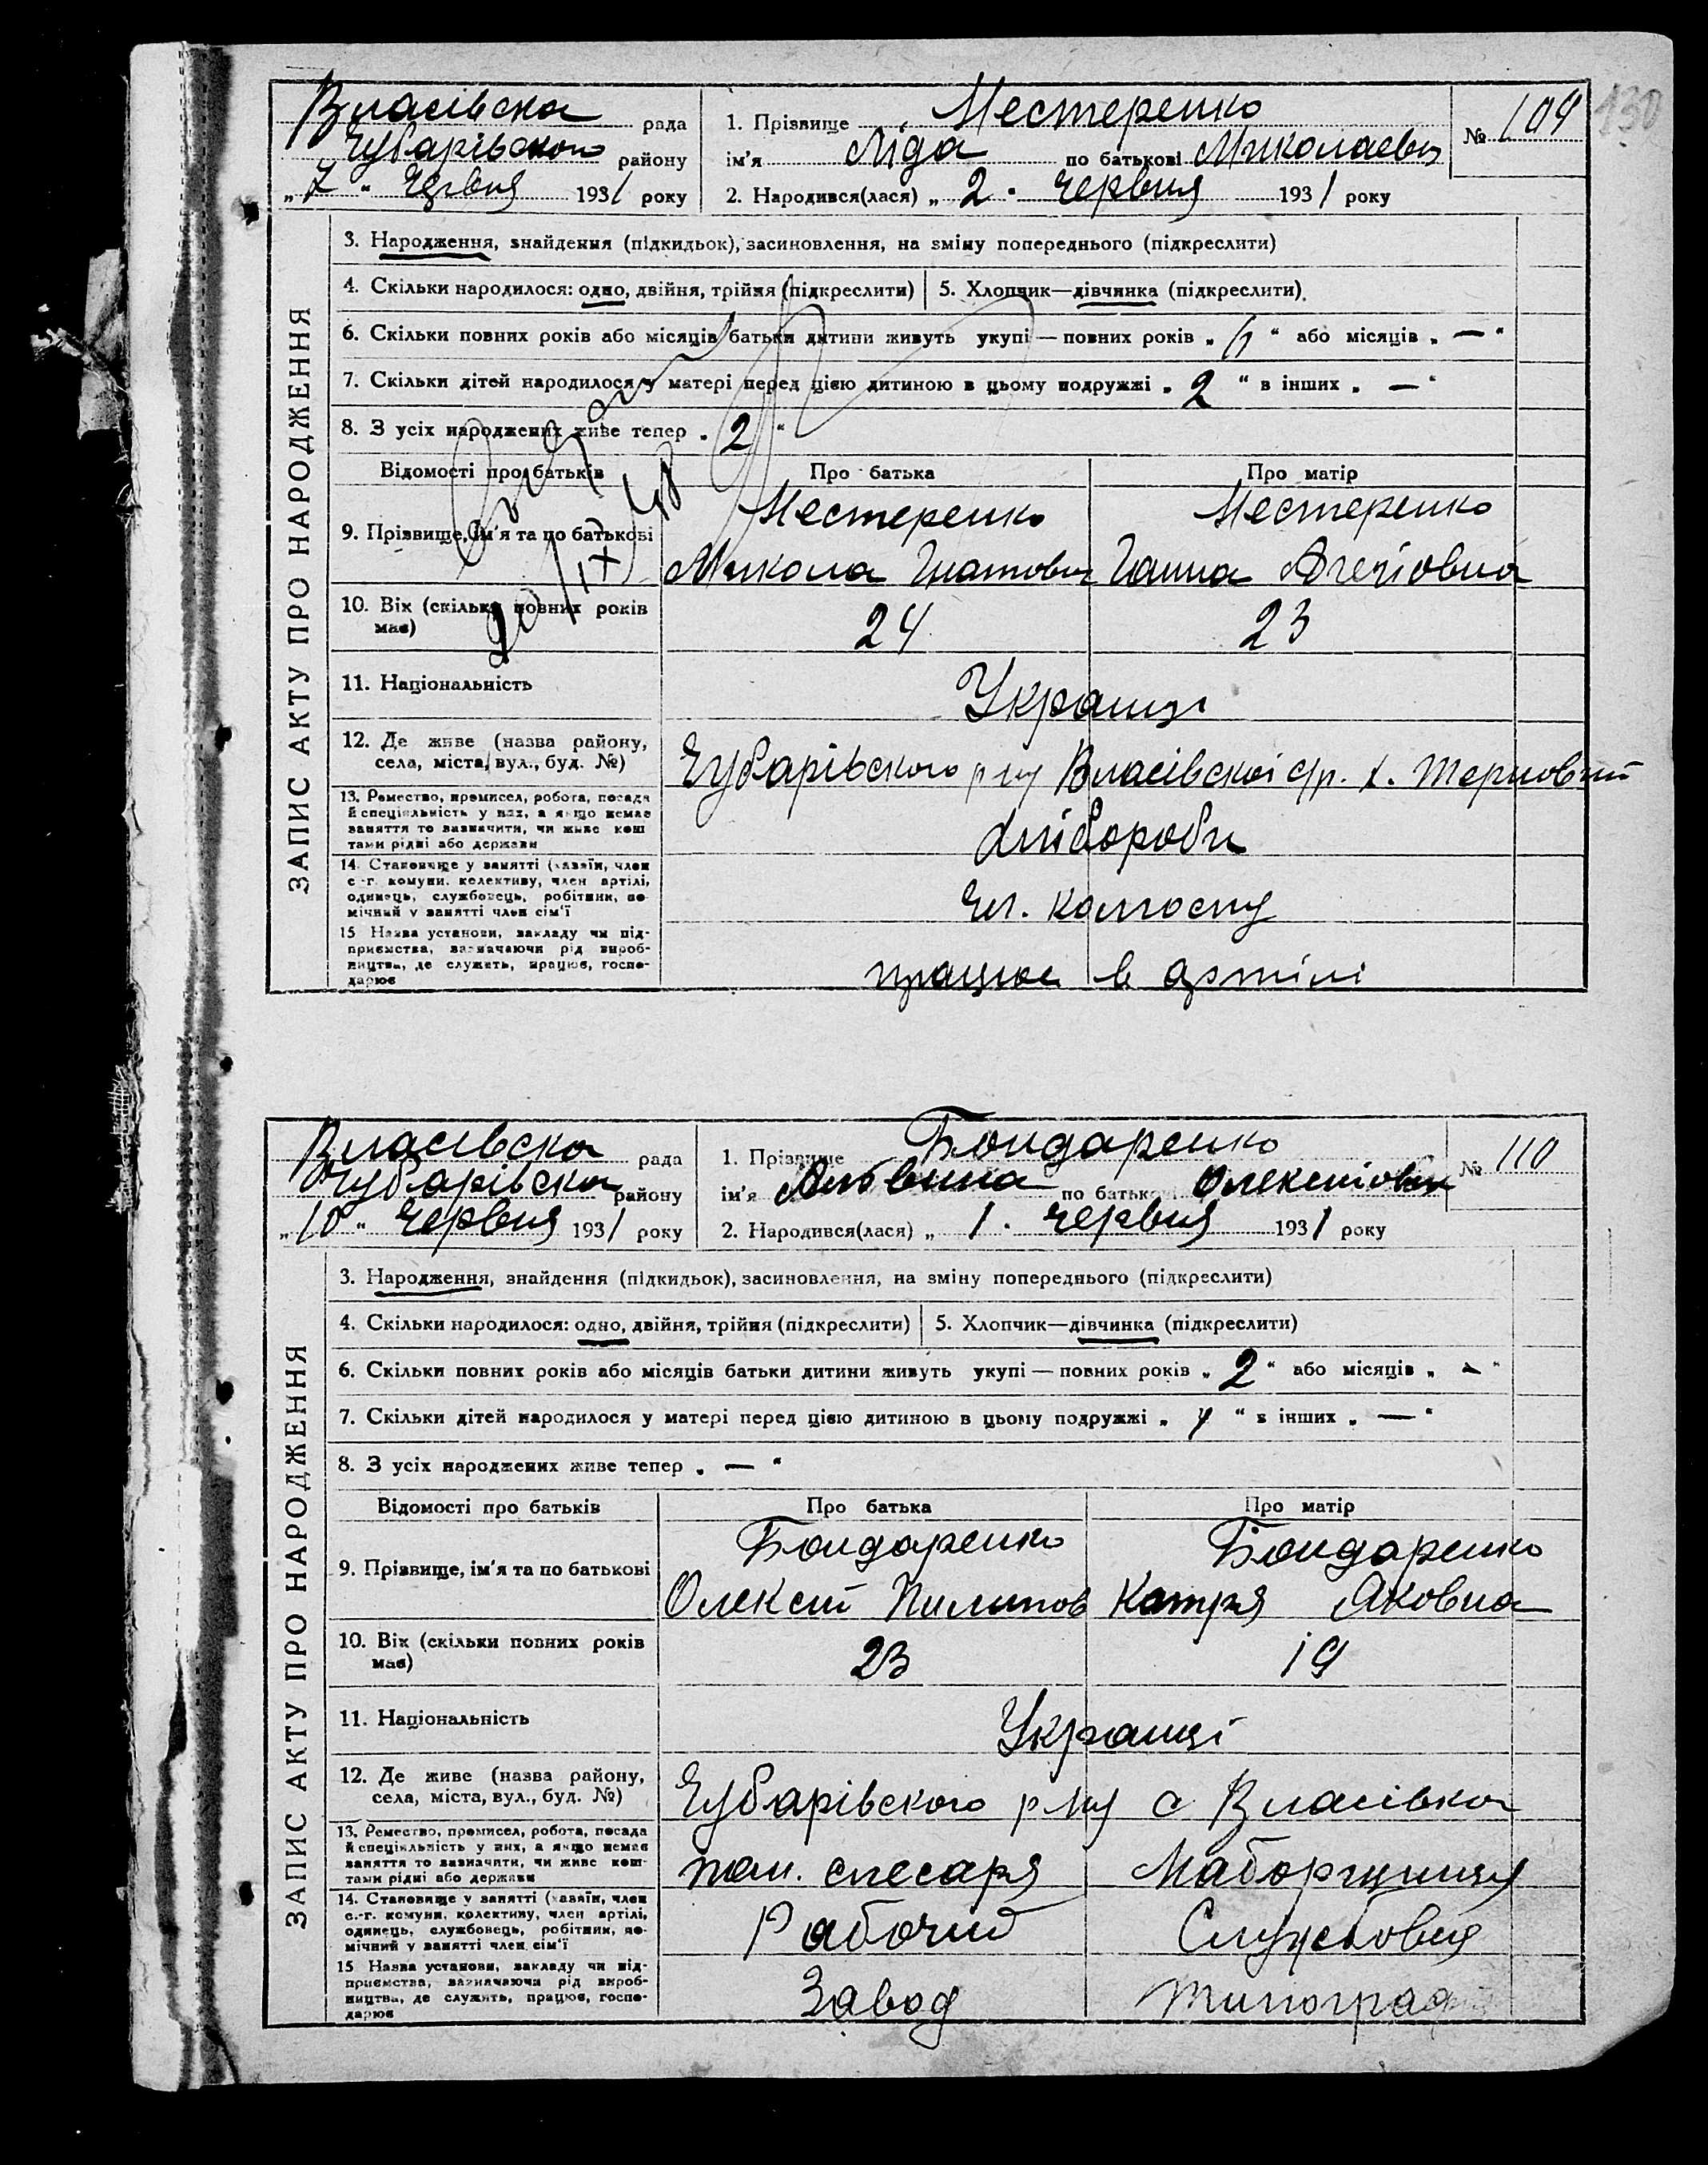 130
Власівска рада
Чубарівского району
„7“ Червня 1931 року
1. Прізвище Нестеренко
ім'я Ліда по батькові Миколаевн
№ 109
2. Народився(лася) „2“ Червня 1931 року
ЗАПИС АКТУ ПРО НАРОДЖЕННЯ
3. Народження, знайдення (підкидьок), засиновлення, на зміну попереднього (підкреслити)
4. Скільки народилося: одно, двійня, трійня (підкреслити) 5. Хлопчик—дівчинка (підкреслити).
6. Скільки повних років або місяців батьки дитини живуть укупі — повних років „ “ або місяців „—“
7. Скільки дітей народилося у матері перед цією дитиною в цьому подружжі „2“ в інших „—“
8. З усіх народжених живе тепер „2“
Відомості про батьків Про батька Про матір
9. Прізвище, ім'я та по батькові
Нестеренко Нестеренко
Микола Гнатович Ганна
10. Вік (скільки повних років має)
24 23
11. Національність
Українці
12. Де живе (назва району, села, міста, вул., буд. №)
Чубарівского р-ну Власівскої с/р. х. Терновий
13. Ремество, промисел, робота, посада й спеціяльність у них, а якщо немає заняття то зазначити, чи живе коштами рідні або держави
хлібороби
14. Становище у занятті (хазяїн, член с.-г. комуни, колективу, член артілі, одинець, службовець, робітник, помічний у занятті член сім'ї
Чл. колгоспу
15 Назва установи, закладу чи підприємства, зазначаючи рід виробництва, де служить, працює, господарює
працює в артілі
20/IX 48
Власівска рада
Чубарівска району
„10“ Червня 1931 року
1. Прізвище Бондаренко
ім'я Альвина по батькові Олексіовн
№ 110
2. Народився(лася) „1“ Червня 1931 року
ЗАПИС АКТУ ПРО НАРОДЖЕННЯ
3. Народження, знайдення (підкидьок), засиновлення, на зміну попереднього (підкреслити)
4. Скільки народилося: одно, двійня, трійня (підкреслити) 5. Хлопчик—дівчинка (підкреслити)
6. Скільки повних років або місяців батьки дитини живуть укупі — повних років „2“ або місяців „—“
7. Скільки дітей народилося у матері перед цією дитиною в цьому подружжі „ “ в інших „—“
8. З усіх народжених живе тепер „—“
Відомості про батьків Про батька Про матір
9. Прізвище, ім'я та по батькові
Бондаренко Бондаренко
Олексій Пилипов Катря Яковна
10. Вік (скільки повних років має)
23 19
11. Національність
Українці
12. Де живе (назва району, села, міста, вул., буд. №)
Чубарівского р-ну с Власівка
13. Ремество, промисел, робота, посада й спеціяльність у них, а якщо немає заняття то зазначити, чи живе коштами рідні або держави
пом. слесаря Наборщиця
14. Становище у занятті (хазяїн, член с.-г. комуни, колективу, член артілі, одинець, службовець, робітник, помічний у занятті член сім'ї
Рабочий Службовця
15 Назва установи, закладу чи підприємства, зазначаючи рід виробництва, де служить, працює, господарює
Завод типограф